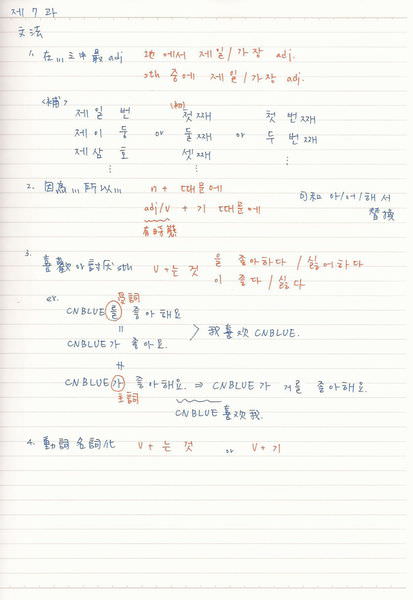 제 7 과
文法
1. 在...之中最 adj 地 에서 제일/가장 adj.
sth 중에 제일/가장 adj.
<補>
제 일 번 첫째 첫 번째
제 이 등 or 둘째 or 두 번째
제 삼 호 셋째 ⋮
⋮ ⋮
2. 因為...所以... n + 때문에
adj/v + 기 때문에 可和 아/어/해서
有時態 替換
3.
喜歡 or 討厌 sth V+는 것 을 좋아하다 / 싫어하다
이 좋다 / 싫다
ex. 受詞
CNBLUE를 좋아해요
=
CNBLUE가 좋아요. > 我喜欢 CNBLUE.
≠
CNBLUE가 좋아해요. ⇒ CNBLUE가 저를 좋아해요.
主詞
CNBLUE 喜欢我.
4. 動詞名詞化 V+는 것 or V+기